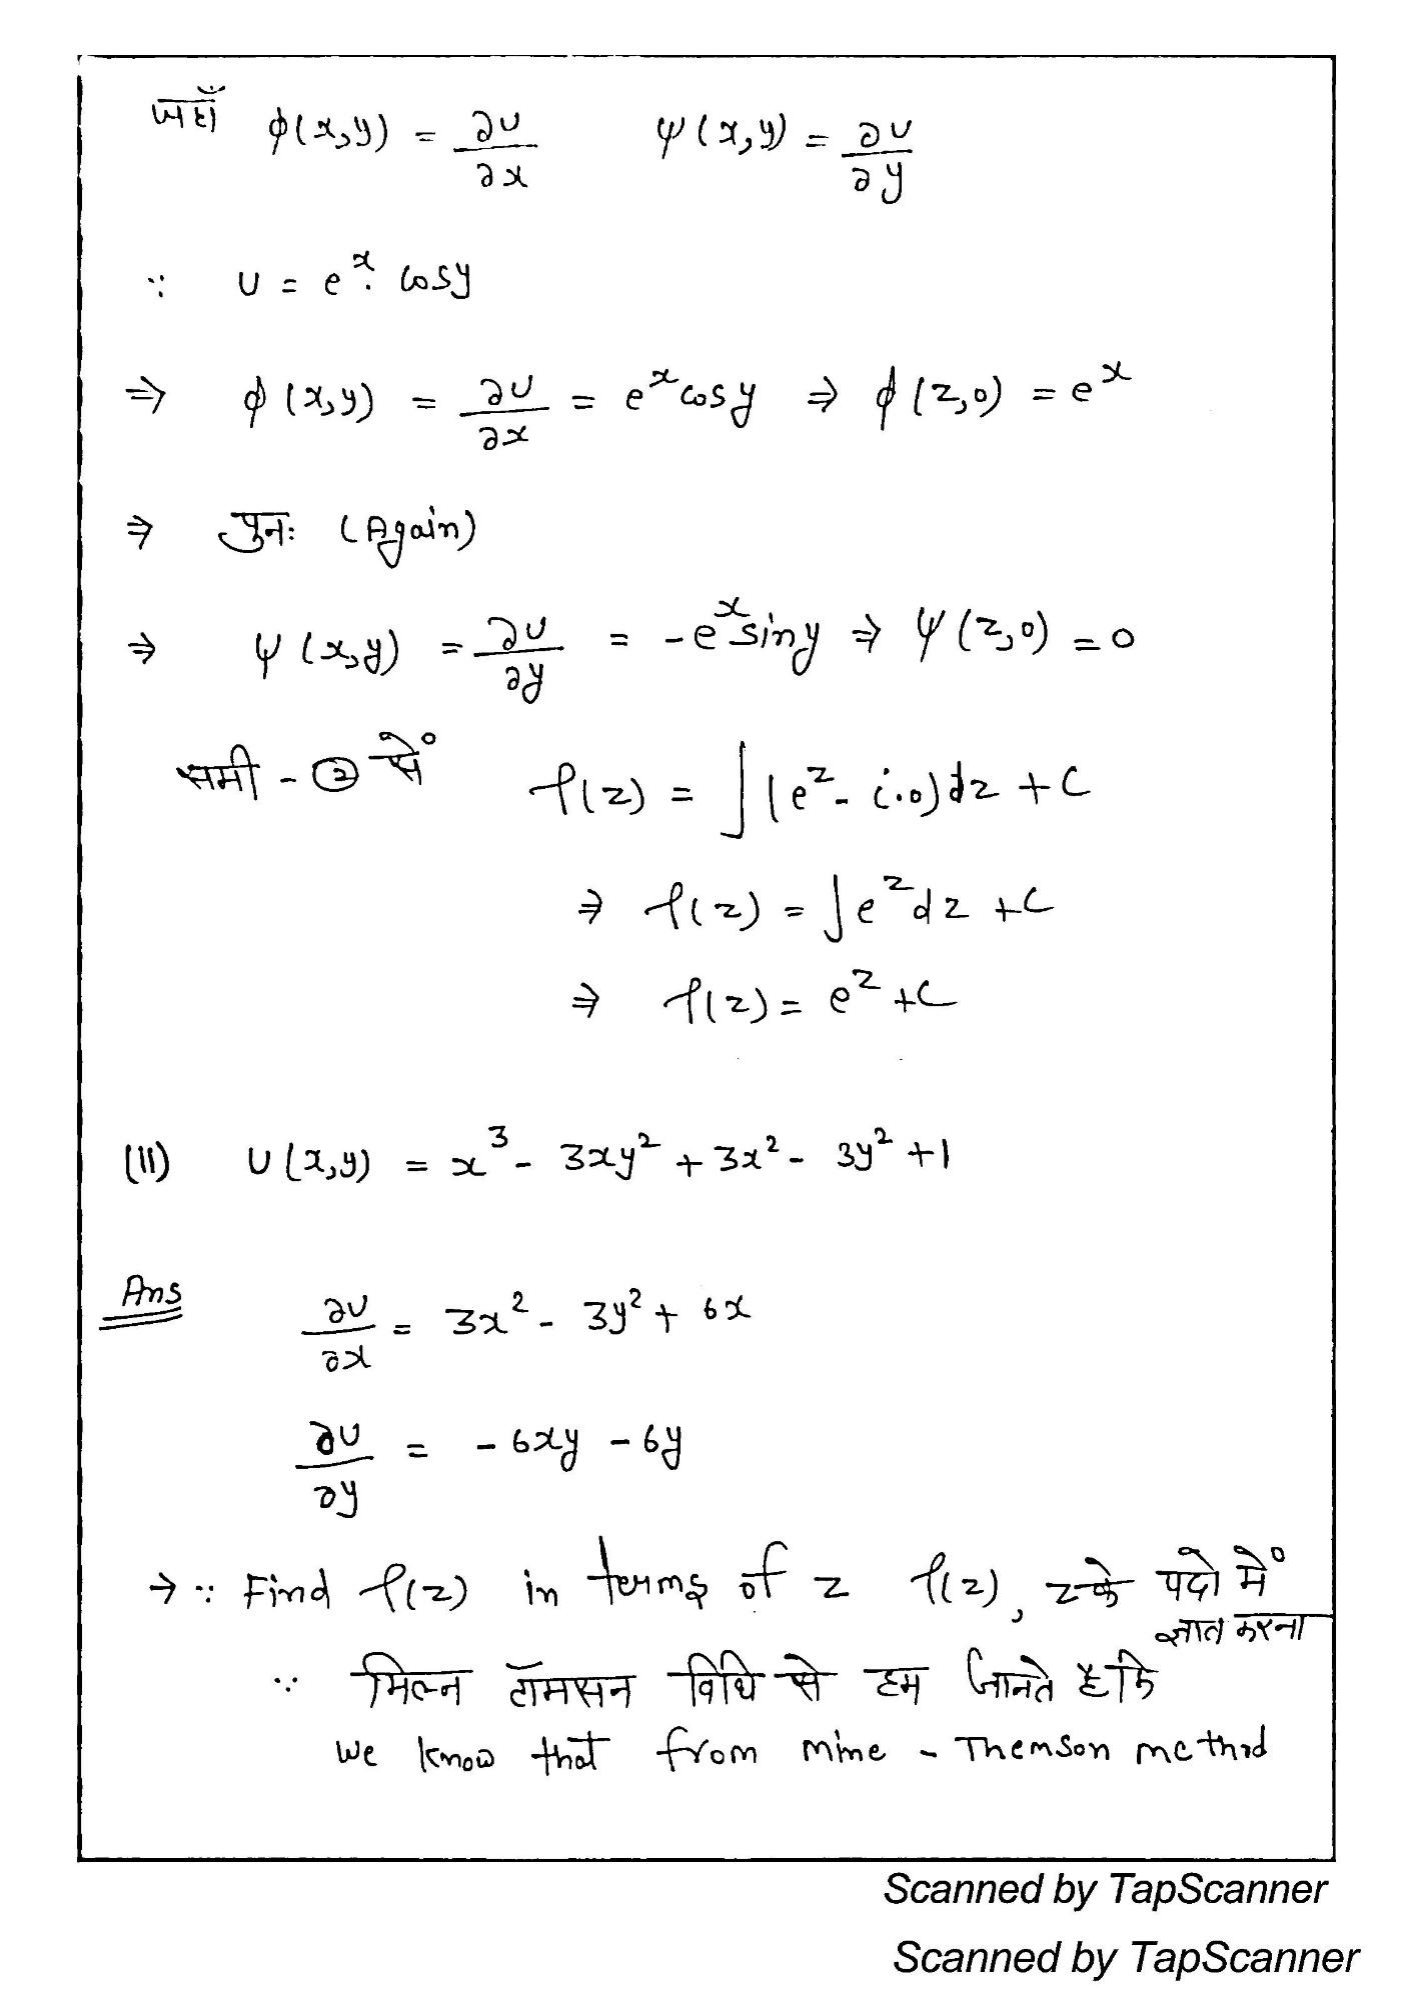 जहाँ φ(x,y) = ∂u/∂x ψ(x,y) = ∂u/∂y
∵ u = e^x. cosy
⇒ φ(x,y) = ∂u/∂x = e^x cosy ⇒ φ(z,0) = e^x
⇒ पुनः (Again)
⇒ ψ(x,y) = ∂u/∂y = -e^x siny ⇒ ψ(z,0) = 0
समी - ② सें f(z) = ∫(e^z - i.0)dz + c
⇒ f(z) = ∫e^z dz + c
⇒ f(z) = e^z + c
(11) u(x,y) = x^3 - 3xy^2 + 3x^2 - 3y^2 + 1
Ans ∂u/∂x = 3x^2 - 3y^2 + 6x
∂u/∂y = - 6xy - 6y
→ ∵ Find f(z) in terms of z f(z), z के पदो में
ज्ञात करना
∵ मिल्न टॉमसन विधि से हम जानते है कि
we know that from mine - Themson method
Scanned by TapScanner
Scanned by TapScanner